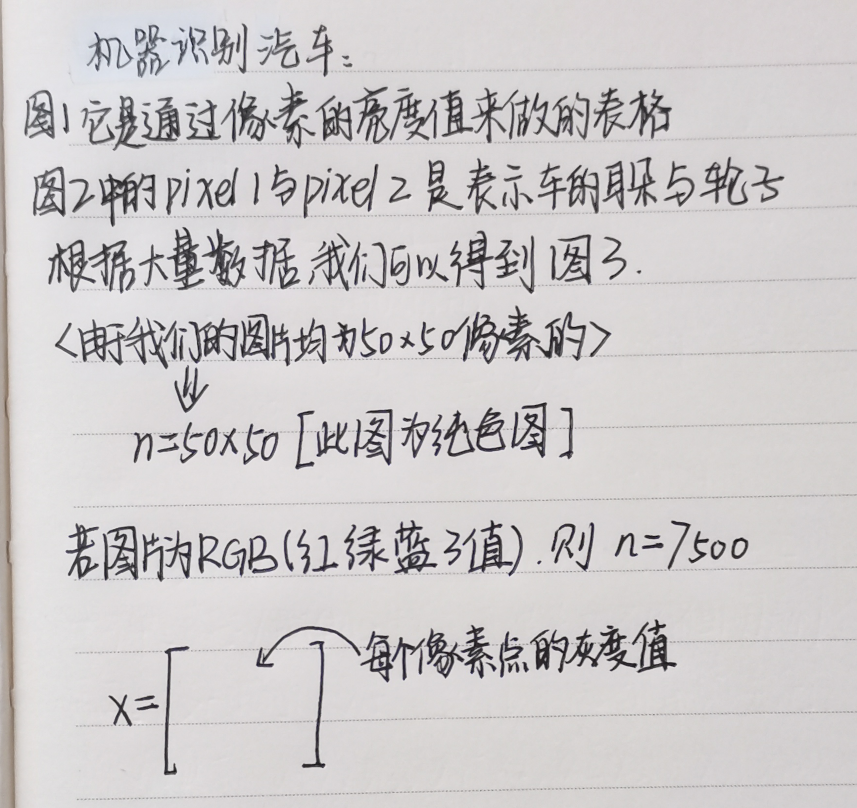 机器识别汽车:
图1它是通过像素的亮度值来做的表格
图2中的pixel 1与pixel 2是表示车的耳朵与轮子
根据大量数据,我们可以得到图3.
<由于我们的图片均为50×50像素的>
⇓
n=50×50 [此图为纯色图]
若图片为RGB(红绿蓝3值).则 n=7500
x=[ ] 每个像素点的灰度值